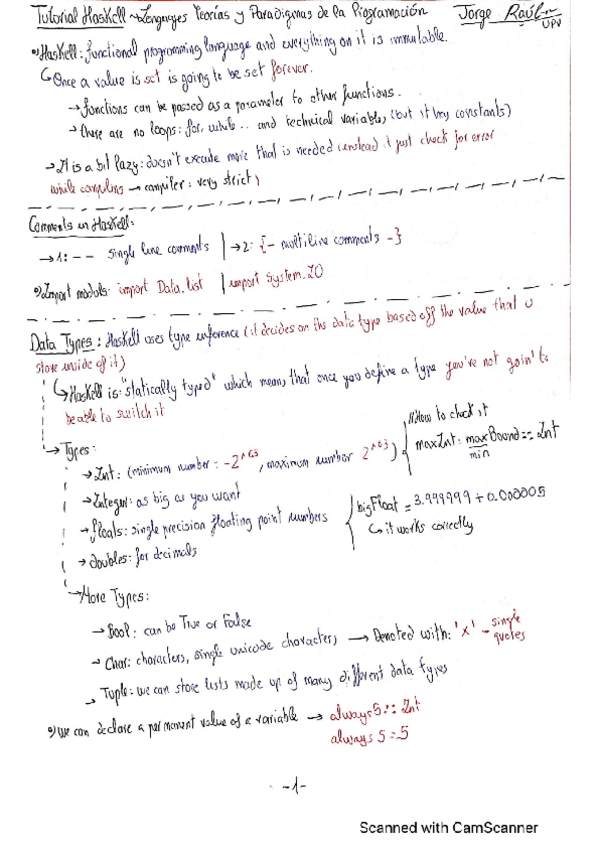 Tutorial Haskell ~ Lenguajes Teorías y Paradigmas de la Programación Jorge Raúl
UPV
Haskell: functional programming language and everything on it is immutable.
↳ Once a value is set is going to be set forever.
→ functions can be passed as a parameter to other functions.
→ there are no loops: for, while.. and technical variables (but it has constants)
→ It is a bit lazy: doesn't execute more that is needed (instead it just check for error
while compiling → compiler: very strict)
Comments in Haskell:
→ 1: -- single line comments | → 2: {- multiline comments -}
Import moduls: import Data.list | import System.IO
Data Types: Haskell uses type inference (it decides on the data type based off the value that u
store inside of it)
↳ Haskell is "statically typed" which means that once you define a type you're not goin' to
be able to switch it
→ Types:
→ Int: (minimum number: -2^63, maximum number 2^63)
//How to check it
maxInt = maxBound :: Int
min
→ Integer: as big as you want
→ floats: single precision floating point numbers
bigFloat = 3.999999 + 0.000005
↳ it works correctly
→ doubles: for decimals
→ More Types:
→ Bool: can be True or False
→ Char: characters, single unicode characters → Denoted with: 'x' - single
quotes
→ Tuple: we can store lists made up of many different data types
we can declare a permanent value of a variable → always5 :: Int
always5 = 5
-1-
Scanned with CamScanner